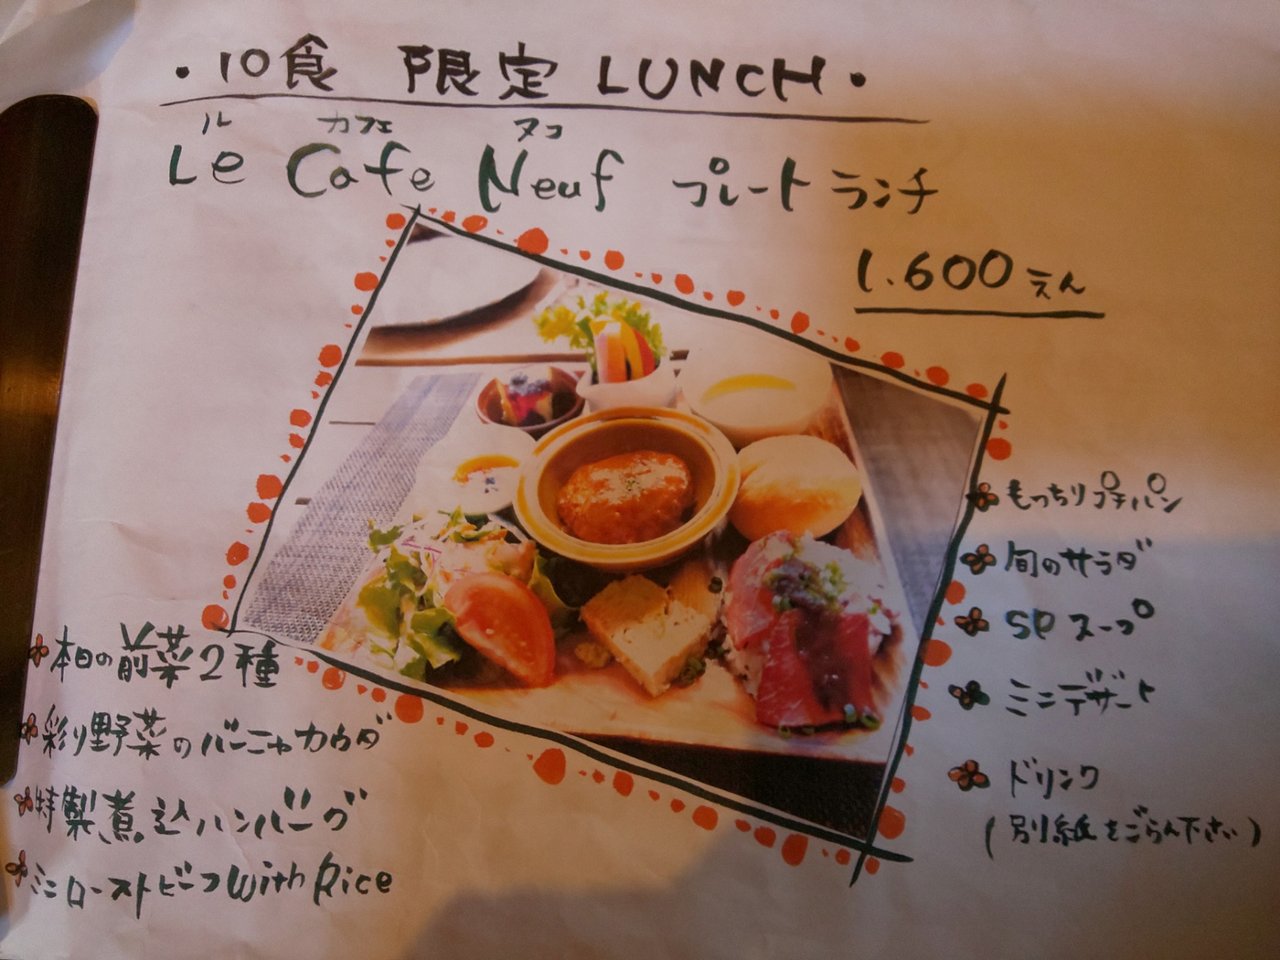 ・10食 限定 LUNCH・
ル カフェ ヌフ
Le Cafe Neuf プレートランチ
1.600えん
本日の前菜2種
彩り野菜のバーニャカウダ
特製煮込ハンバーグ
ミニローストビーフ With Rice
もっちりプチパン
旬のサラダ
SPスープ
ミニデザート
ドリンク
(別紙をごらん下さい)